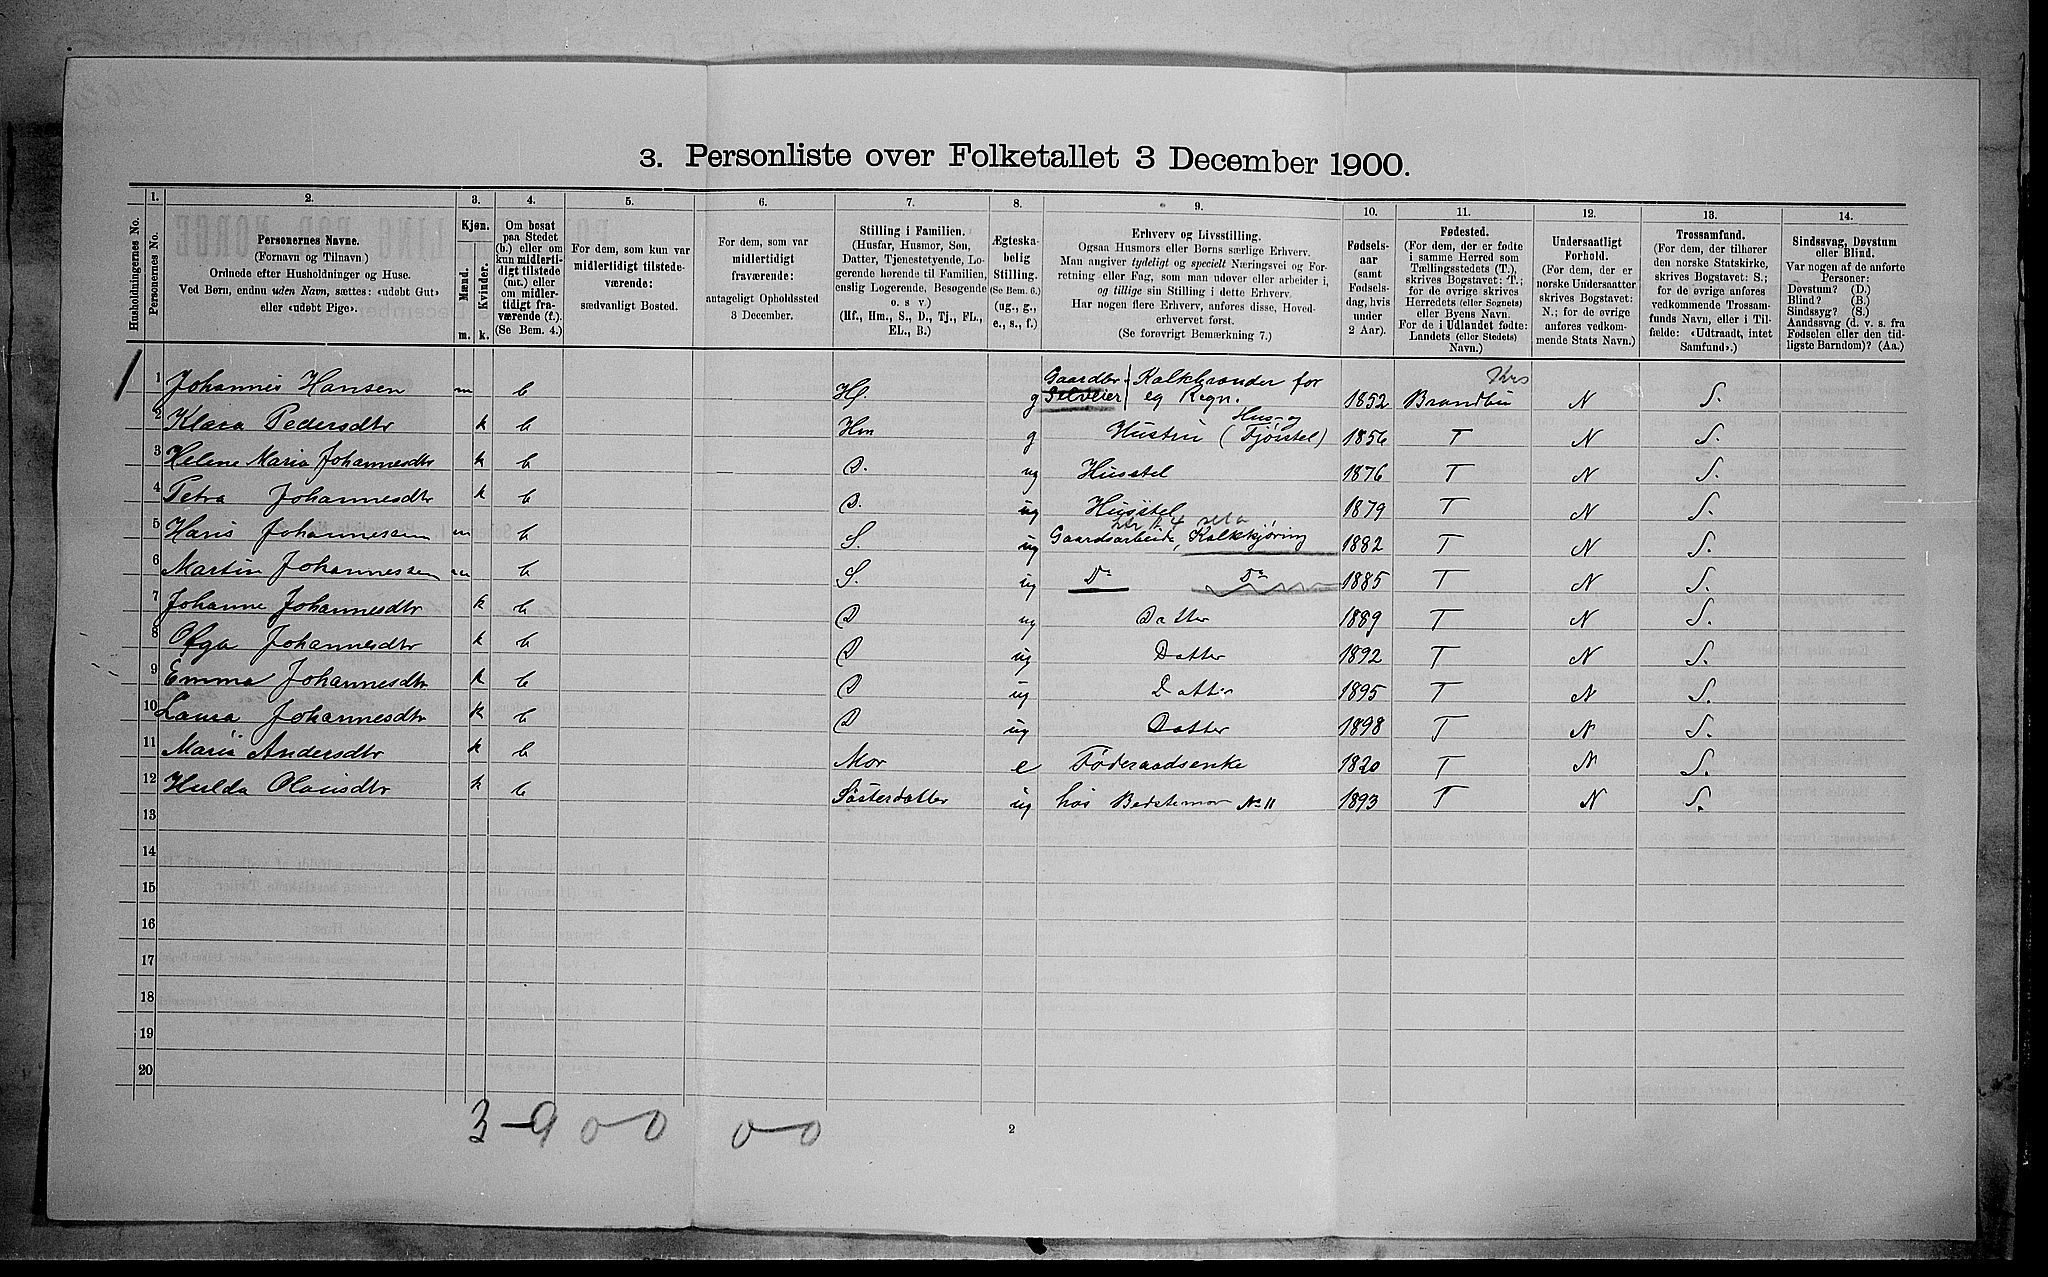 3. Personliste over Folketallet 3 December 1900.
Husholdningernes No.
1. Personernes No.
2. Personernes Navne. (Fornavn og Tilnavn) Ordnede efter Husholdninger og Huse. Ved Børn, endnu uden Navn, sættes: «udøbt Gut» eller «udøbt Pige».
3. Kjøn. Mænd. m. Kvinder. k.
4. Om bosat paa Stedet (b.) eller om kun midlertidigt tilstede (mt.) eller om midlertidigt fraværende (f.). (Se Bem. 4.)
5. For dem, som kun var midlertidigt tilstedeværende: sædvanligt Bosted.
6. For dem, som var midlertidigt fraværende: antageligt Opholdssted 3 December.
7. Stilling i Familien. (Husfar, Husmor, Søn, Datter, Tjenestetyende, Logerende hørende til Familien, enslig Logerende, Besøgende o. s v.) (Hf., Hm., S., D., Tj., FL., EL., B.)
8. Ægteskabelig Stilling. (Se Bem. 6.) (ug., g., e., s., f.)
9. Erhverv og Livsstilling. Ogsaa Husmors eller Børns særlige Erhverv. Man angiver tydeligt og specielt Næringsvei og Forretning eller Fag, som man udøver eller arbeider i, og tillige sin Stilling i dette Erhverv. Har nogen flere Erhverv, anføres disse, Hovederhvervet først. (Se forøvrigt Bemærkning 7.)
10. Fødselsaar (samt Fødselsdag, hvis under 2 Aar).
11. Fødested. (For dem, der er fødte i samme Herred som Tællingsstedets (T.), skrives Bogstavet: T.; for de øvrige skrives Herredets (eller Sognets) eller Byens Navn. For de i Udlandet fødte: Landets (eller Stedets) Navn.)
12. Undersaatligt Forhold. (For dem, der er norske Undersaatter skrives Bogstavet: N.; for de øvrige anføres vedkommende Stats Navn.)
13. Trossamfund. (For dem, der tilhører den norske Statskirke, skrives Bogstavet: S.; for de øvrige anføres vedkommende Trossamfunds Navn, eller i Tilfælde: «Udtraadt, intet Samfund».)
14. Sindssvag, Døvstum eller Blind. Var nogen af de anførte Personer: Døvstum? (D.) Blind? (B.) Sindssyg? (S.) Aandssvag (d. v. s. fra Fødselen eller den tidligste Barndom)? (Aa.)
1 Johannes Hansen m b H. g Gaardbr Selveier Kalkbrænder for eg Regn. 1852 Brandbu Krs N S.
2 Klara Pedersdtr k b Hm g Hustru (Hus- og Fjøsstel) 1856 T N S.
3 Helene Maria Johannesdtr k b D. ug Husstel 1876 T N S.
4 Petra Johannesdtr k b D. ug Husstel 1879 T N S.
5 Hans Johannessen m b S. ug Gaardsarbeide, Kalkkjøring 1882 T N S.
6 Martin Johannessen m b S. ug Do Do 1885 T N S.
7 Johanne Johannesdtr k b D ug Datter 1889 T N S.
8 Olga Johannesdtr k b D ug Datter 1892 T N S.
9 Emma Johannesdtr k b D ug Datter 1895 T N S.
10 Laura Johannesdtr k b D ug Datter 1898 T N S.
11 Maria Andersdtr k b Mor e Føderaadsenke 1820 T N S.
12 Hulda Olausdtr k b Søsterdatter ug hos Bedstemor No 11 1893 T N S.
13
14
15
16
17
18
19
20
3-9 0-0 0-0
2